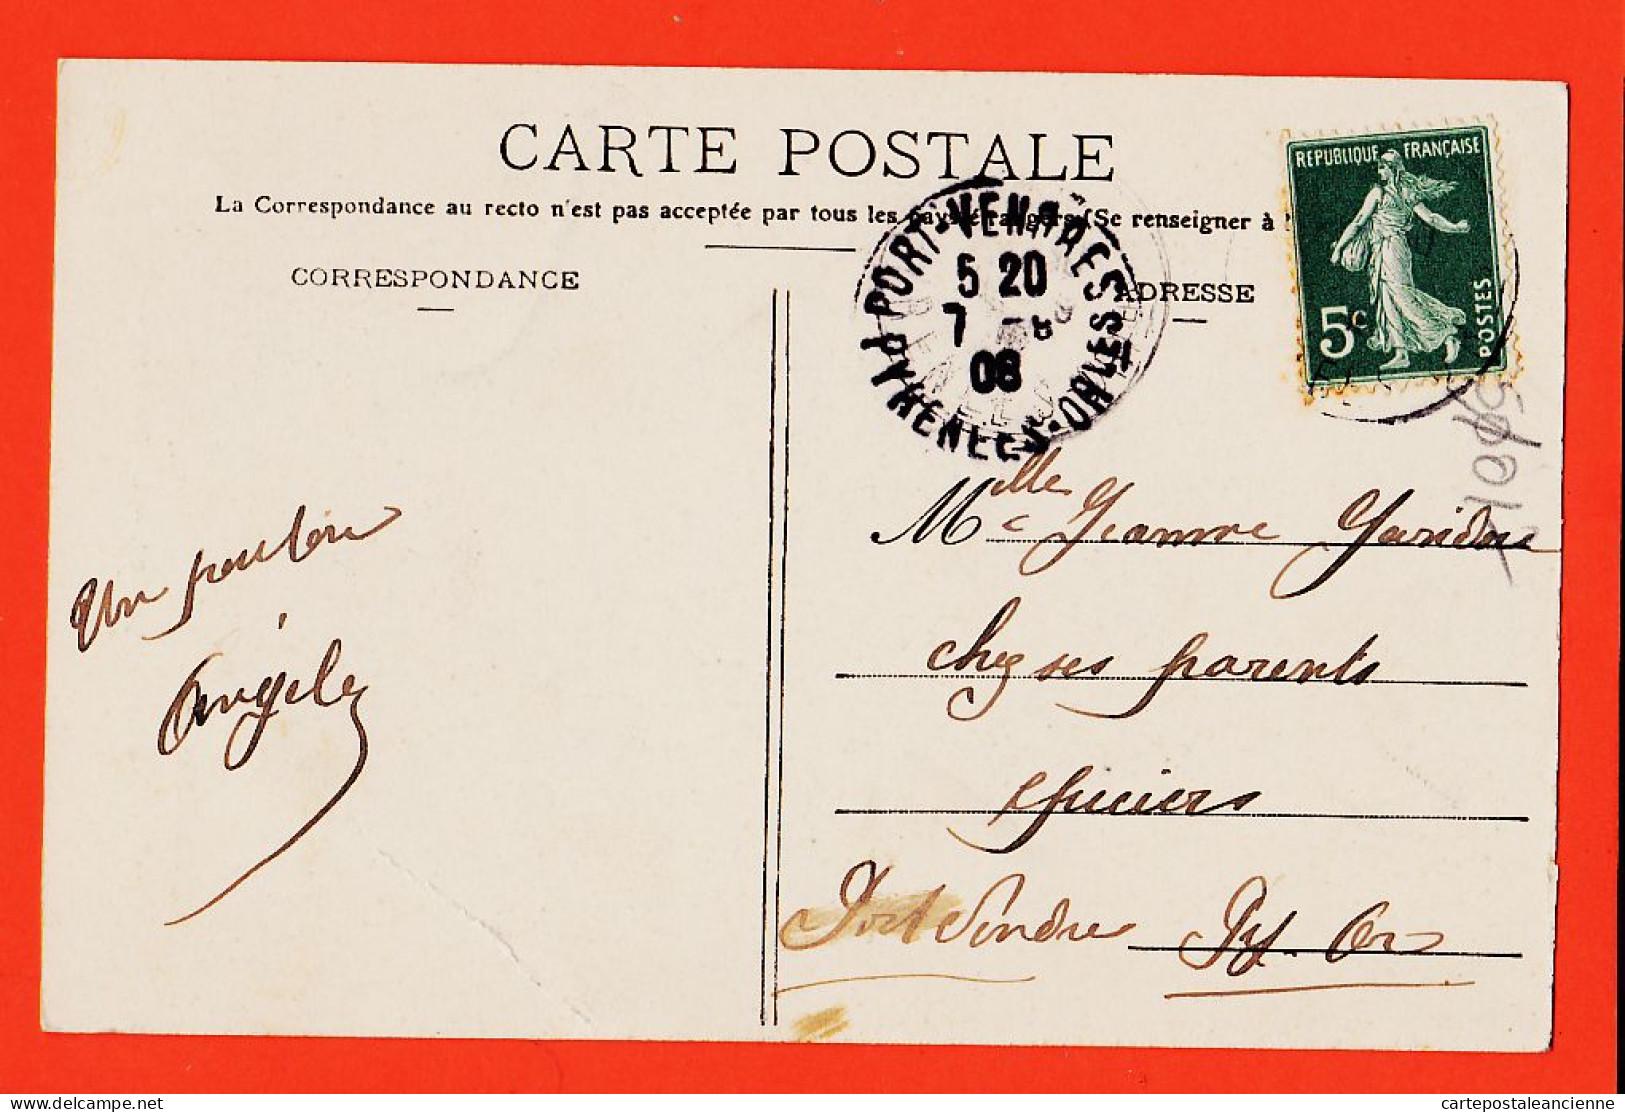 CARTE POSTALE
La Correspondance au recto n'est pas acceptée par tous les pays étrangers (Se renseigner à
CORRESPONDANCE
ADRESSE
REPUBLIQUE FRANÇAISE
5c
POSTES
PORT-VENDRES
5 20
7 -8
08
PYRENEES-ORLES
Un pensée
Angèle
Mlle Jeanne Garidou
chez ses parents
epiciers
Port Vendres Py. Or
cartepostaleancienne
delcampe.net